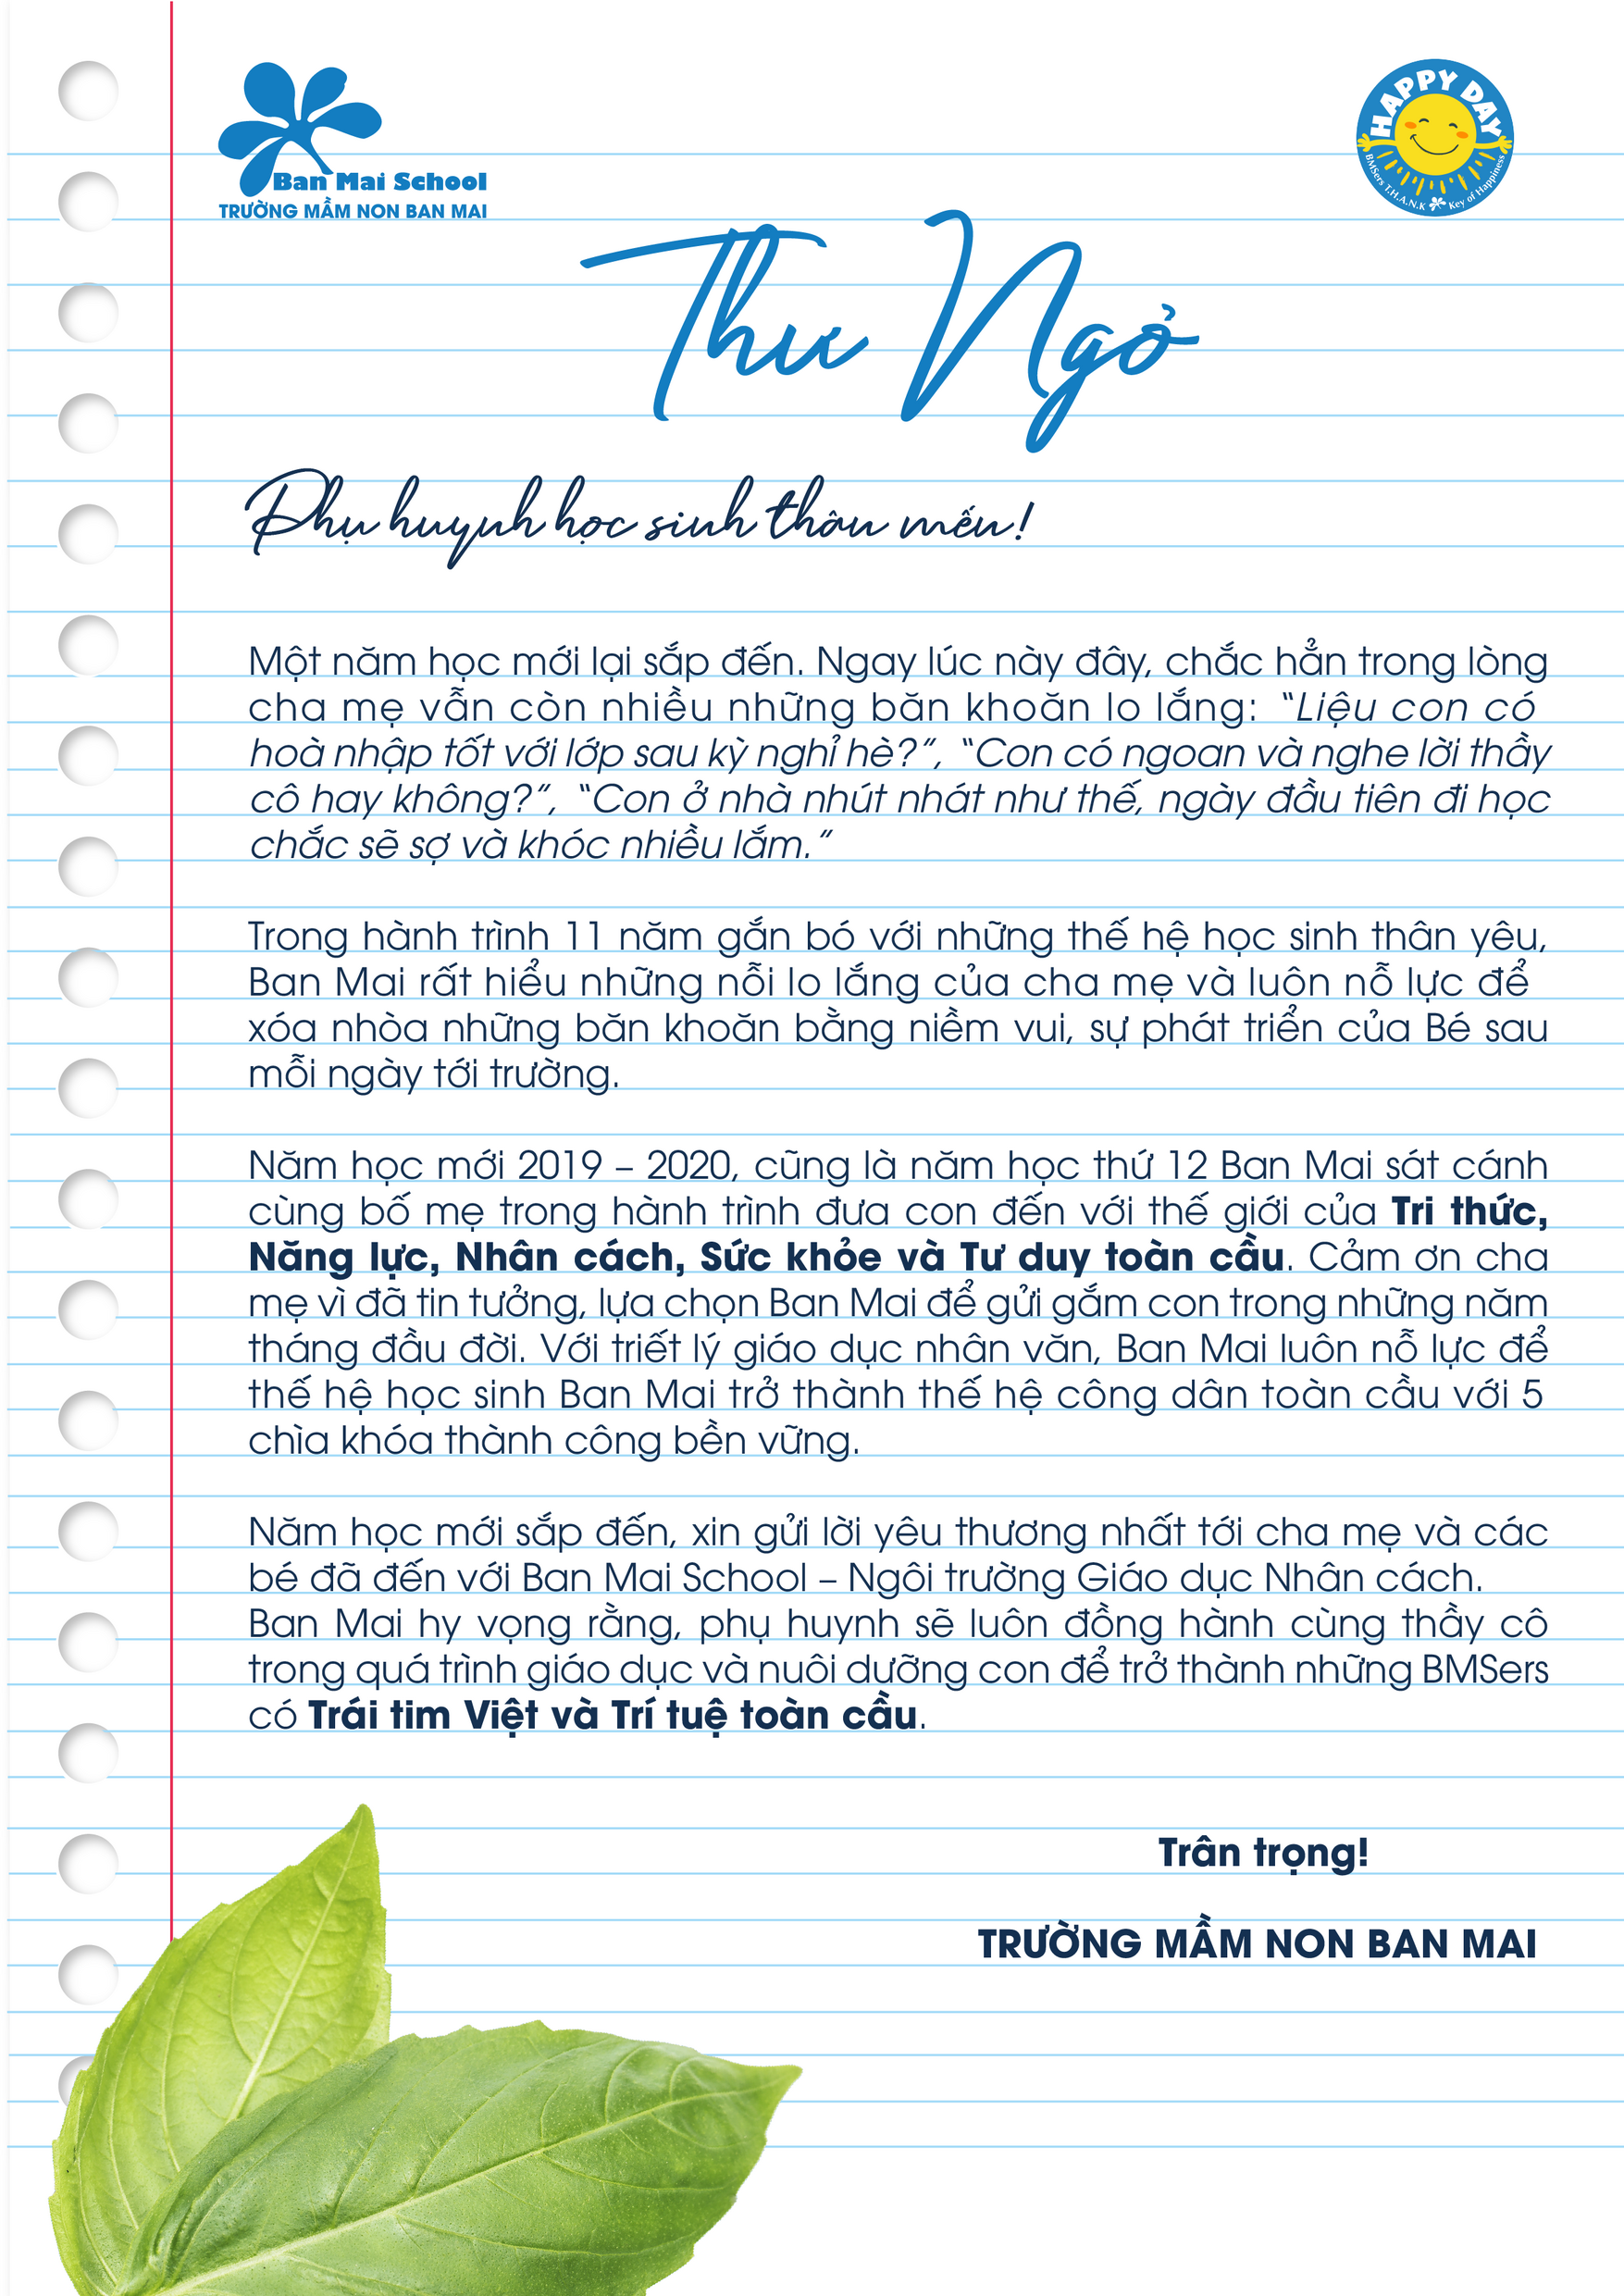 Ban Mai School
TRƯỜNG MẦM NON BAN MAI
HAPPY DAY
BMSers T.H.A.N.K Key of Happiness
Thư Ngỏ
Phụ huynh học sinh thân mến!
Một năm học mới lại sắp đến. Ngay lúc này đây, chắc hẳn trong lòng
cha mẹ vẫn còn nhiều những băn khoăn lo lắng: “Liệu con có
hoà nhập tốt với lớp sau kỳ nghỉ hè?”, “Con có ngoan và nghe lời thầy
cô hay không?”, “Con ở nhà nhút nhát như thế, ngày đầu tiên đi học
chắc sẽ sợ và khóc nhiều lắm.”
Trong hành trình 11 năm gắn bó với những thế hệ học sinh thân yêu,
Ban Mai rất hiểu những nỗi lo lắng của cha mẹ và luôn nỗ lực để
xóa nhòa những băn khoăn bằng niềm vui, sự phát triển của Bé sau
mỗi ngày tới trường.
Năm học mới 2019 – 2020, cũng là năm học thứ 12 Ban Mai sát cánh
cùng bố mẹ trong hành trình đưa con đến với thế giới của Tri thức,
Năng lực, Nhân cách, Sức khỏe và Tư duy toàn cầu. Cảm ơn cha
mẹ vì đã tin tưởng, lựa chọn Ban Mai để gửi gắm con trong những năm
tháng đầu đời. Với triết lý giáo dục nhân văn, Ban Mai luôn nỗ lực để
thế hệ học sinh Ban Mai trở thành thế hệ công dân toàn cầu với 5
chìa khóa thành công bền vững.
Năm học mới sắp đến, xin gửi lời yêu thương nhất tới cha mẹ và các
bé đã đến với Ban Mai School – Ngôi trường Giáo dục Nhân cách.
Ban Mai hy vọng rằng, phụ huynh sẽ luôn đồng hành cùng thầy cô
trong quá trình giáo dục và nuôi dưỡng con để trở thành những BMSers
có Trái tim Việt và Trí tuệ toàn cầu.
Trân trọng!
TRƯỜNG MẦM NON BAN MAI